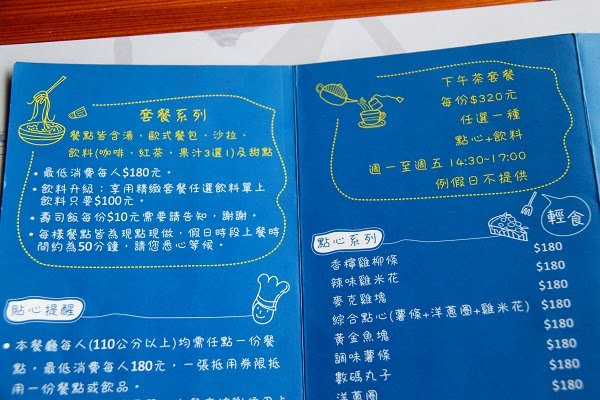 套餐系列
餐點皆含湯、歐式餐包、沙拉、
飲料(咖啡、紅茶、果汁3選1)及甜點
• 最低消費每人$180元。
• 飲料升級：享用精緻套餐任選飲料單上
飲料只要$100元。
• 壽司飯每份$10元需要請告知，謝謝。
• 每樣餐點皆為現點現做，假日時段上餐時
間約為50分鐘，請您悉心等候。
貼心提醒
• 本餐廳每人(110公分以上)均需任點一份餐
點。最低消費每人180元，一張抵用券限抵
用一份餐點或飲品。
下午茶套餐
每份$320元
任選一種
點心+飲料
週一至週五 14:30~17:00
例假日不提供
輕食
點心系列
香檸雞柳條 $180
辣味雞米花 $180
麥克雞塊 $180
綜合點心(薯條+洋蔥圈+雞米花) $180
黃金魚塊 $180
調味薯條 $180
數碼丸子 $180
洋蔥圈 $180